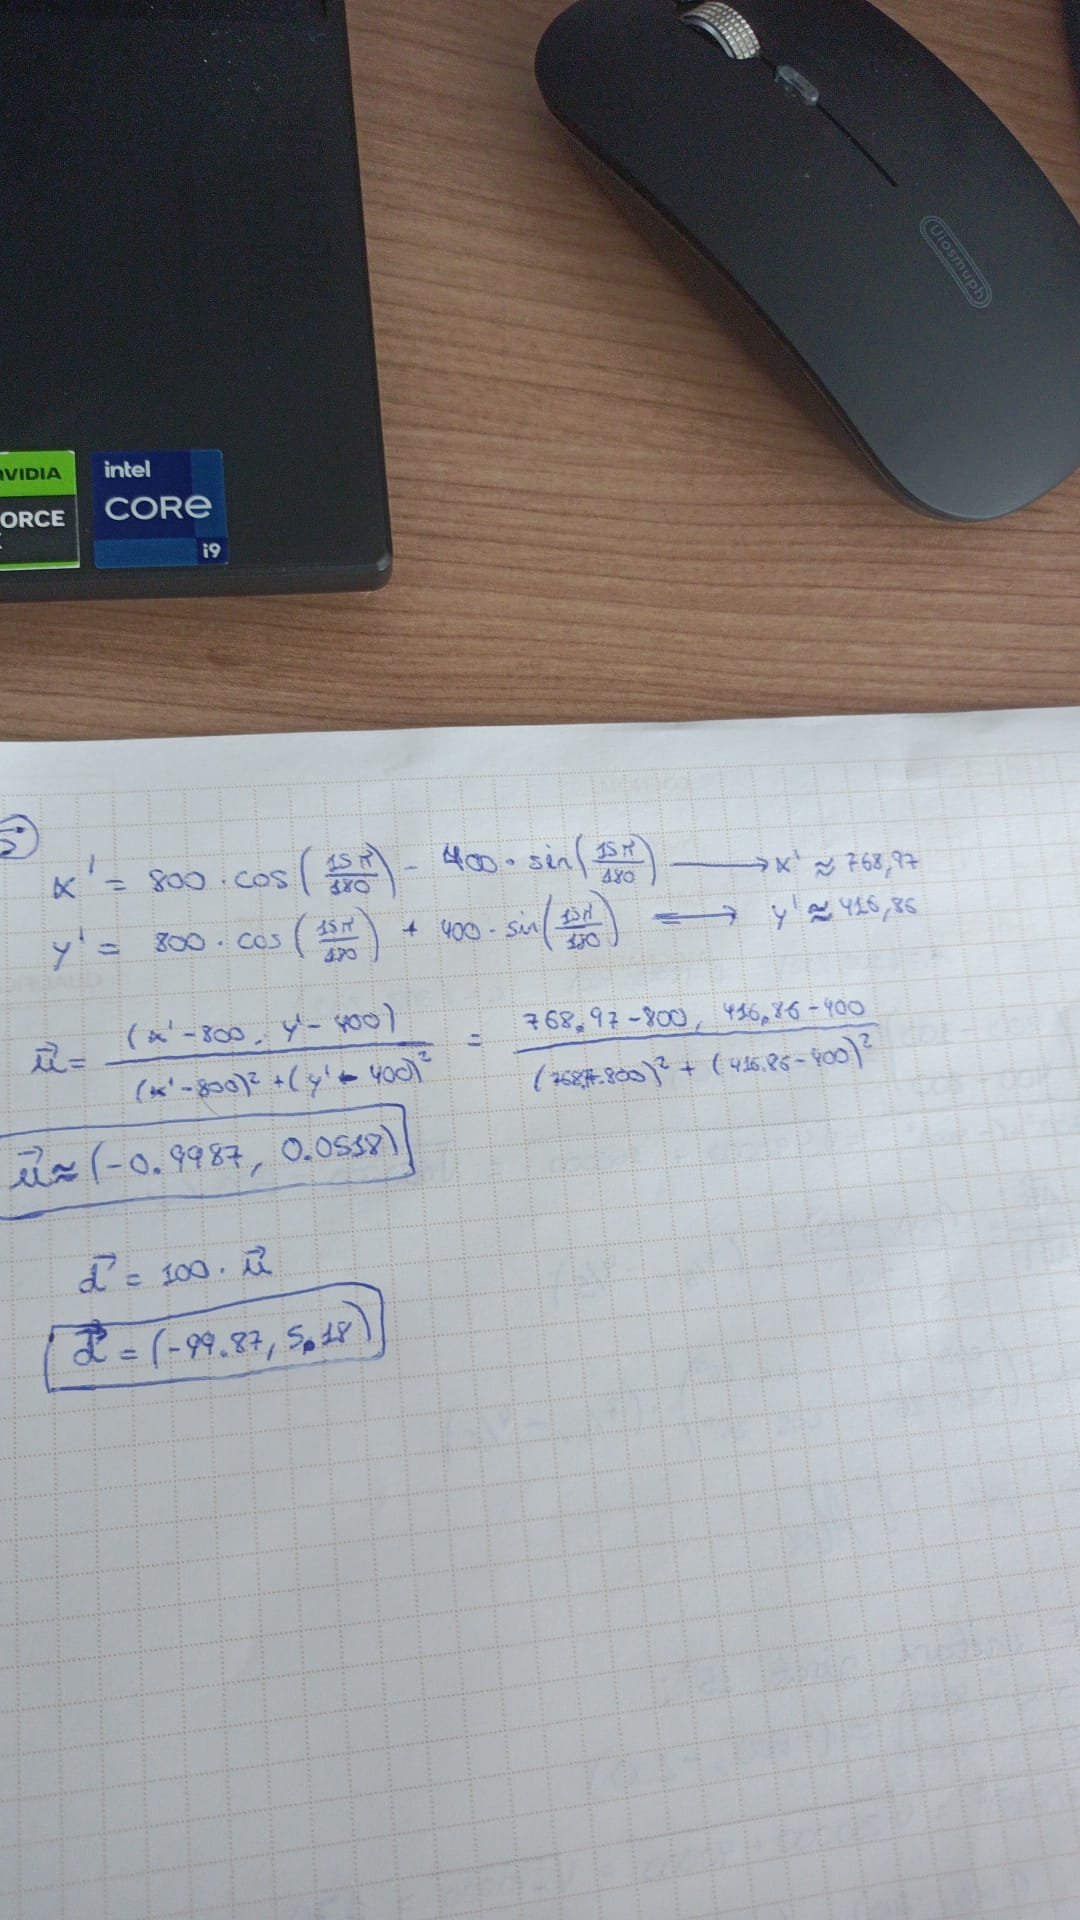 Uiosmuph
NVIDIA
intel
CORE
i9
x' = 800 · cos(15π/180) - 400 · sin(15π/180) → x' ≈ 768,97
y' = 800 · cos(15π/180) + 400 · sin(15π/180) ⟹ y' ≈ 416,86
u⃗ = (x' - 800, y' - 400) / (x' - 800)² + (y' - 400)² = 768.97 - 800, 416.86 - 400 / (768,97-800)² + (416.86 - 400)²
u⃗ ≈ (-0.9987, 0.0518)
d⃗ = 100 · u⃗
d⃗ = (-99.87, 5.18)